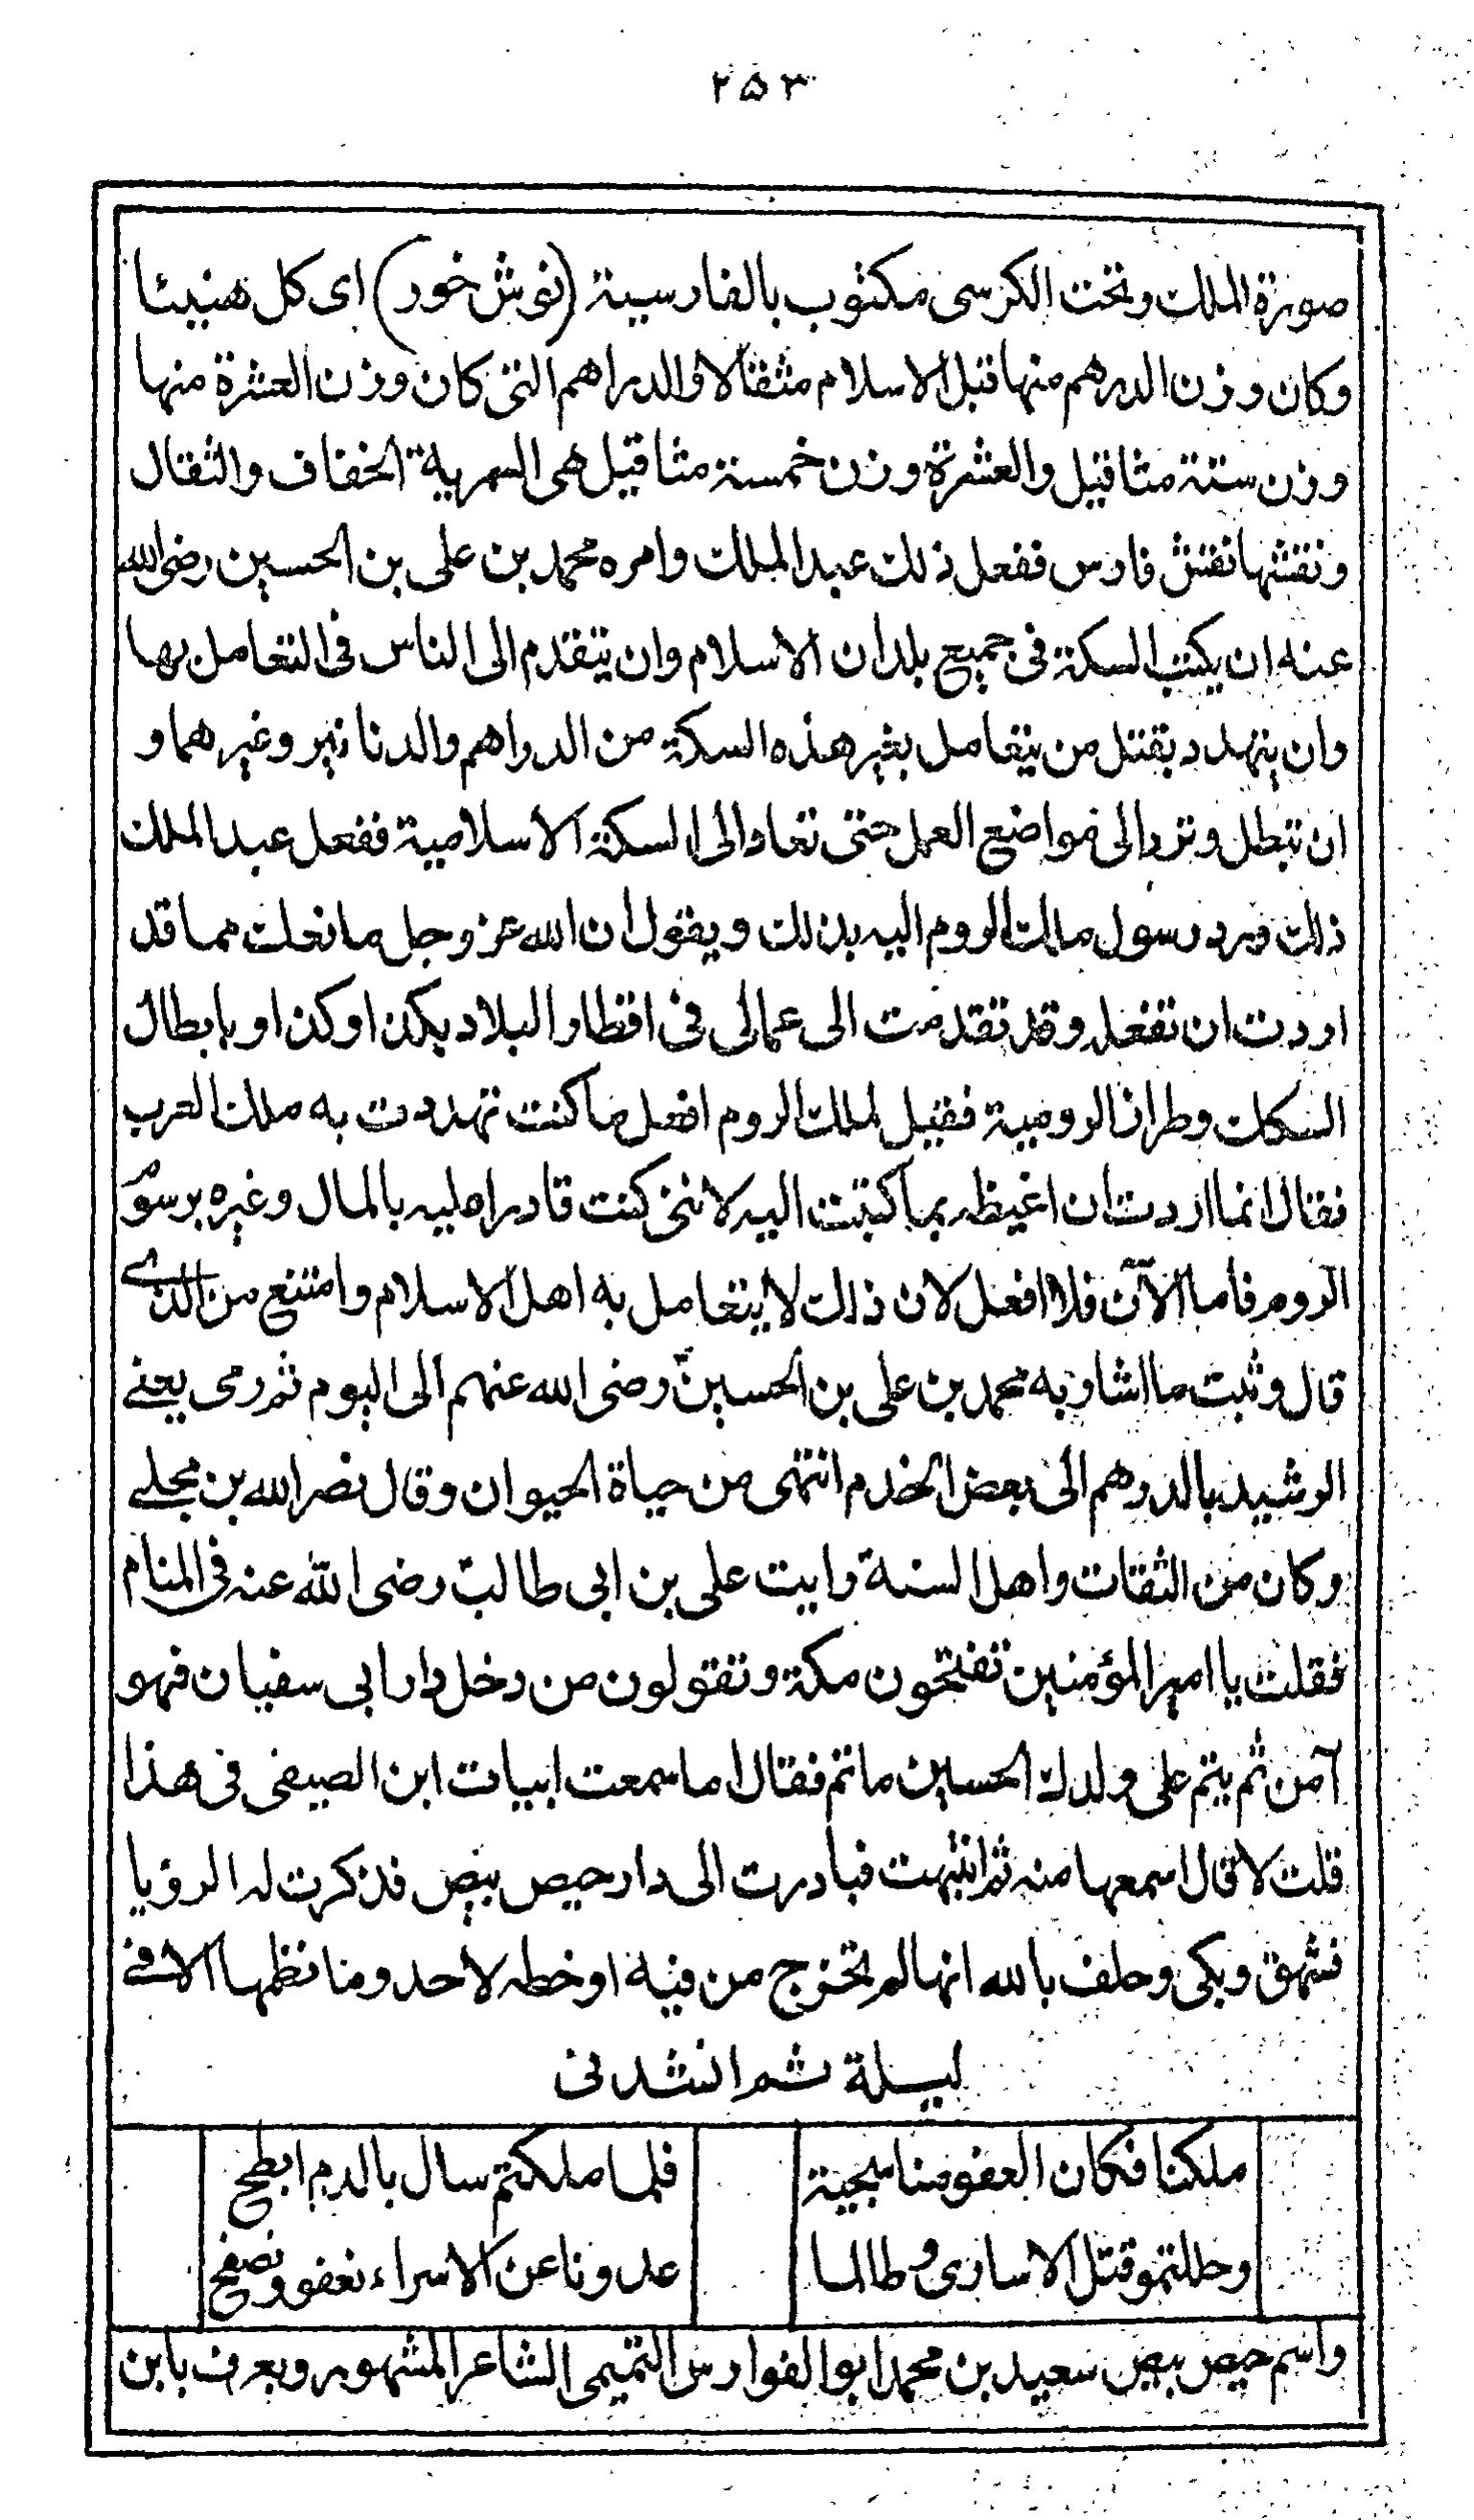 ٢٥٣
صورة الملك وتحت الكرسى مكتوب بالفارسية (نوش خور) اى كل هنيئا
وكان وزن الدرهم منها قبل الاسلام مثقالا والدراهم التى كان وزن العشرة منها
وزن ستة مثاقيل والعشرة وزن خمسة مثاقيل هى السمرية الخفاف والثقال
ونقشها نقش فارس ففعل ذلك عبد الملك وامره محمد بن على بن الحسين رضى الله
عنه ان يكتب السكة فى جميع بلدان الاسلام وان يتقدم الى الناس فى التعامل بها
وان يتهدد بقتل من يتعامل بغير هذه السكة من الدراهم والدنانير وغيرهما و
ان تبطل وترد الى مواضع العمل حتى تعاد الى السكة الاسلامية ففعل عبد الملك
ذلك ورد رسول ملك الروم اليه بذلك ويقول ان الله عز وجل مانعك مما قد
اردت ان تفعله وقد تقدمت الى عمالى فى اقطار البلاد بكذا وكذا وبابطال
السكك وطراز الرومية فقيل لملك الروم افعل ما كنت تهددت به ملك العرب
فقال انما اردت ان اغيظه بما كتبت اليه لاننى كنت قادرا عليه بالمال وغيره برسوم
الروم فأما الآن فلا افعل لان ذلك لا يتعامل به اهل الاسلام وامتنع من الذى
قال وثبت ما اشار به محمد بن على بن الحسين رضى الله عنهم الى اليوم ثم رمى يعنے
الرشيد بالدرهم الى بعض الخدم انتهى من حياة الحيوان وقال نصر الله بن مجلے
وكان من الثقات واهل السنة رايت على بن ابى طالب رضى الله عنه فى المنام
فقلت يا امير المؤمنين تفتحون مكة وتقولون من دخل دار ابى سفيان فهو
آمن ثم يتم على ولدك الحسين ماتم فقال اما سمعت ابيات ابن الصيفى فى هذا
قلت لا قال اسمعها منه ثم انتبهت فبادرت الى دار حيص بيص فذكرت له الرؤيا
فشهق وبكى وحلف بالله انها لم تخرج من فيه او خطه لاحد وما نظمها الا فے
ليلة ثم انشدنى
ملكنا فكان العفو منا سجية فلما ملكتم سال بالدم ابطح
وحللتمو قتل الاسارى وطالما عدونا عن الاسراء نعفو ونصفح
واسم حيص بيص سعيد بن محمد ابو الفوارس التميمى الشاعر المشهور ويعرف بابن